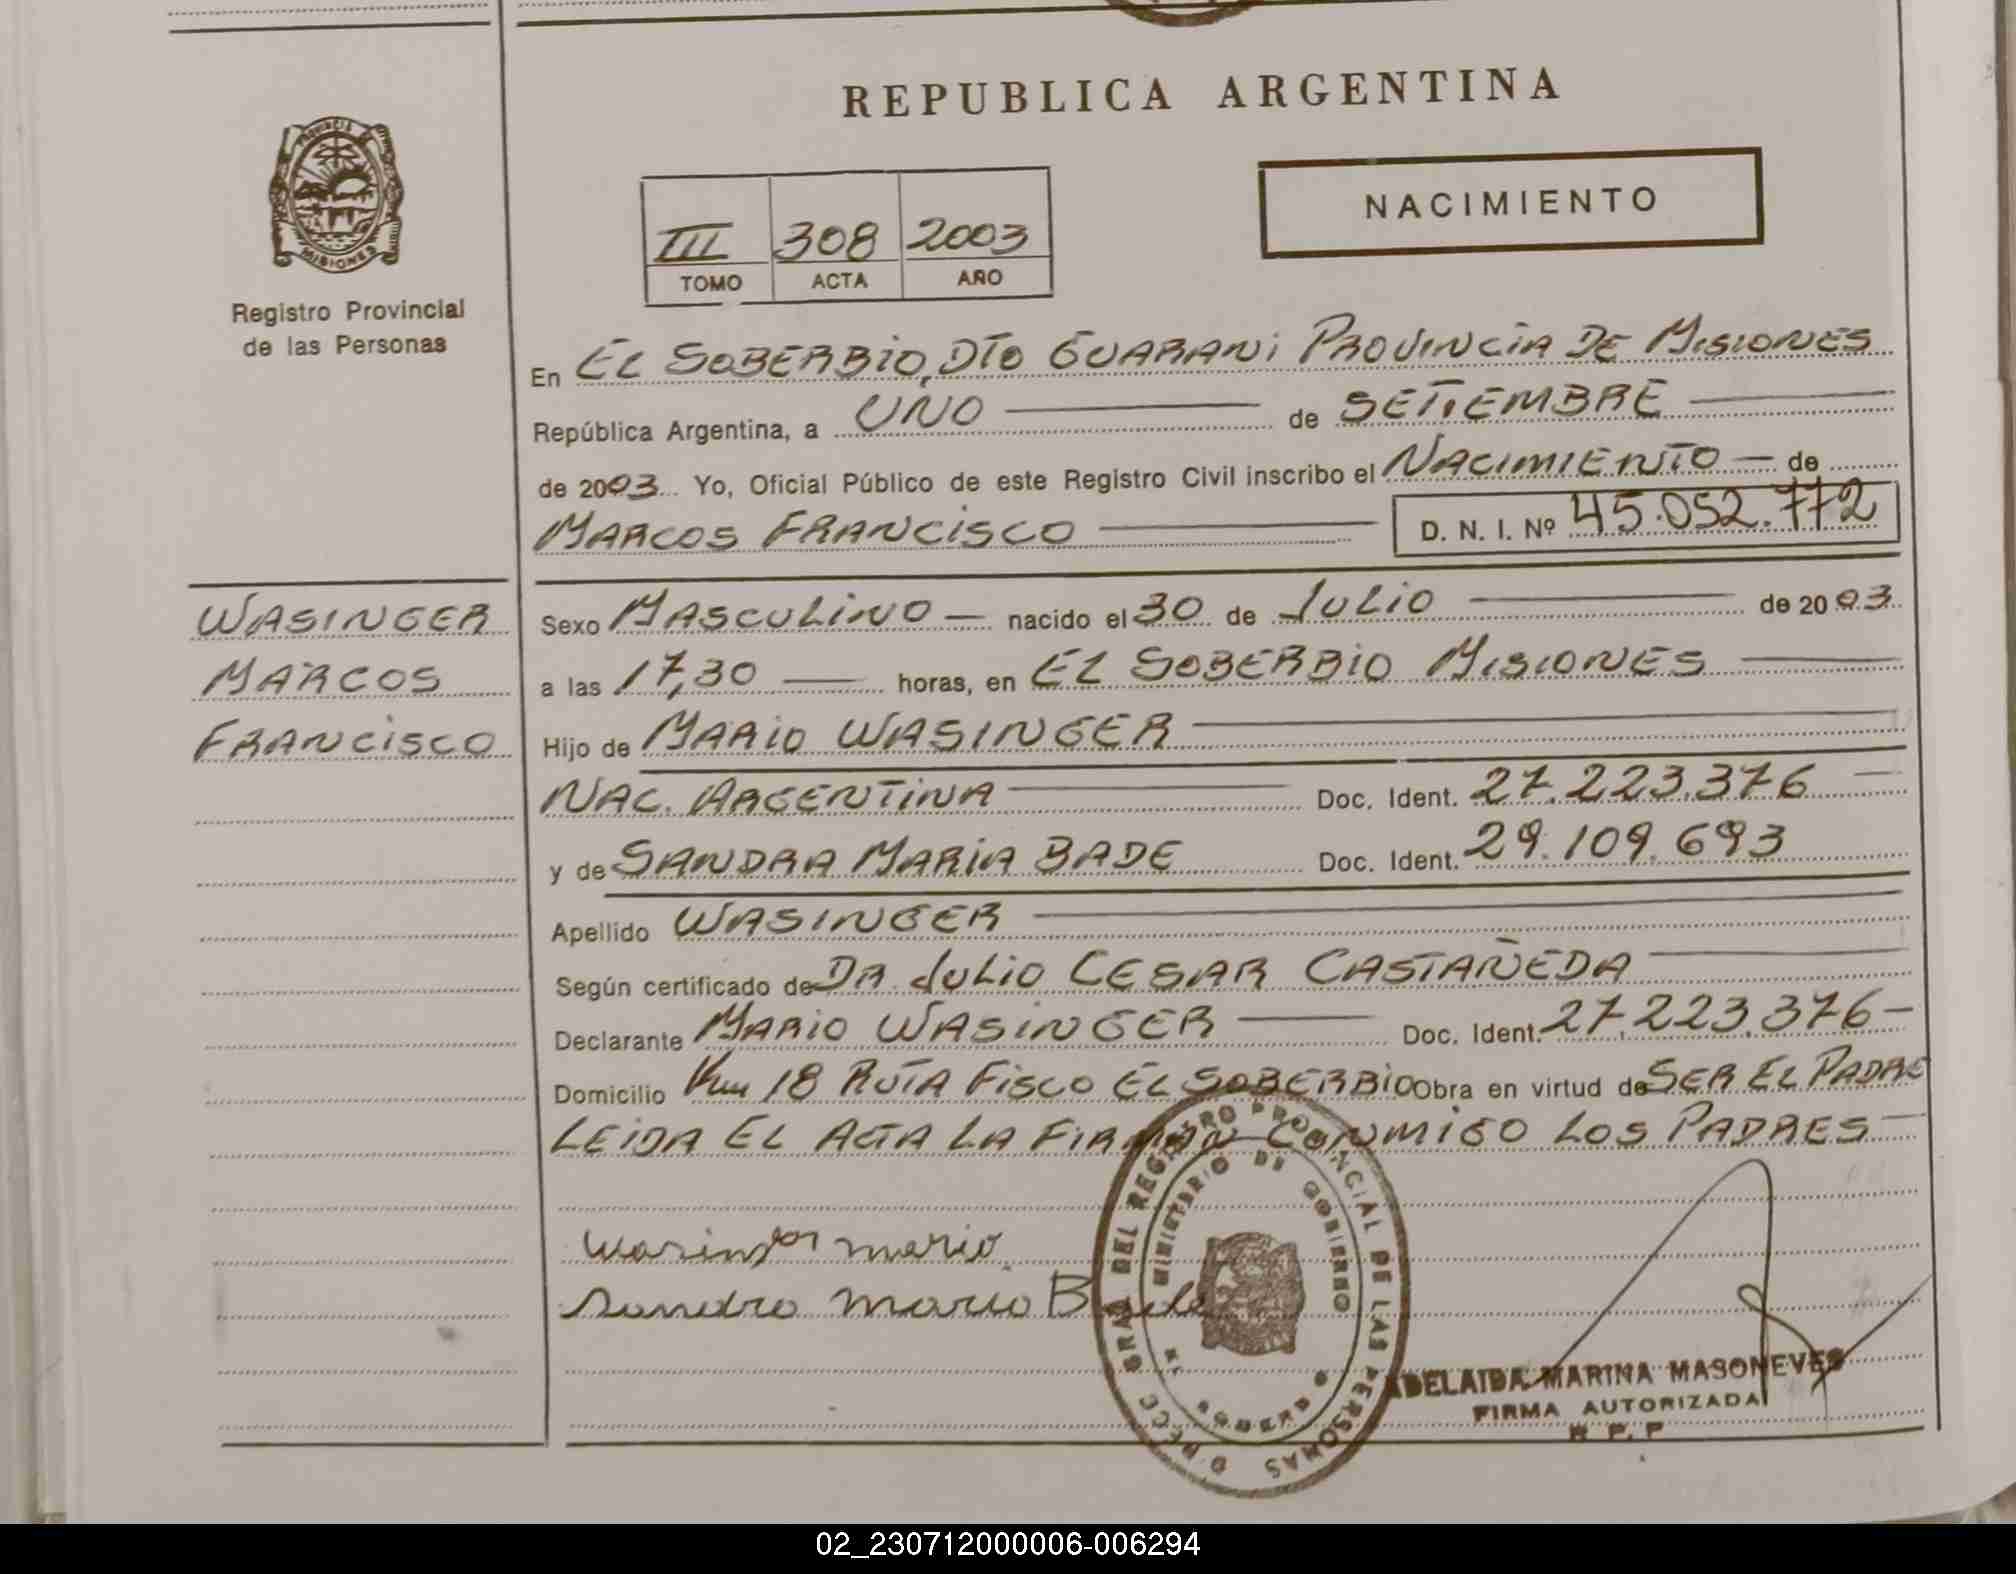 REPUBLICA ARGENTINA
PROVINCIA DE
MISIONES
Registro Provincial
de las Personas
NACIMIENTO
III 308 2003
TOMO ACTA AÑO
En EL SOBERBIO, DTO GUARANI PROVINCIA DE MISIONES
República Argentina, a UNO de SETIEMBRE
de 2003 Yo, Oficial Público de este Registro Civil inscribo el NACIMIENTO de
MARCOS FRANCISCO D. N. I. Nº 45.052.772
WASINGER
MARCOS
FRANCISCO
Sexo MASCULINO nacido el 30 de JULIO de 2003
a las 17,30 horas, en EL SOBERBIO MISIONES
Hijo de MARIO WASINGER
NAC. ARGENTINA Doc. Ident. 27.223.376
y de SANDRA MARIA BADE Doc. Ident. 29.109.693
Apellido WASINGER
Según certificado de DR JULIO CESAR CASTAÑEDA
Declarante MARIO WASINGER Doc. Ident. 27.223.376
Domicilio Km 18 RUTA FISCO EL SOBERBIO Obra en virtud de SER EL PADRE
LEIDA EL ACTA LA FIRMAN CONMIGO LOS PADRES
Wasinger mario
Sandra Maria Bade
DIRECC GRAL DEL REGISTRO PROVINCIAL DE LAS PERSONAS
MINISTERIO DE GOBIERNO
ADELAIDA MARINA MASONEVES
FIRMA AUTORIZADA
R P. P
02_230712000006-006294